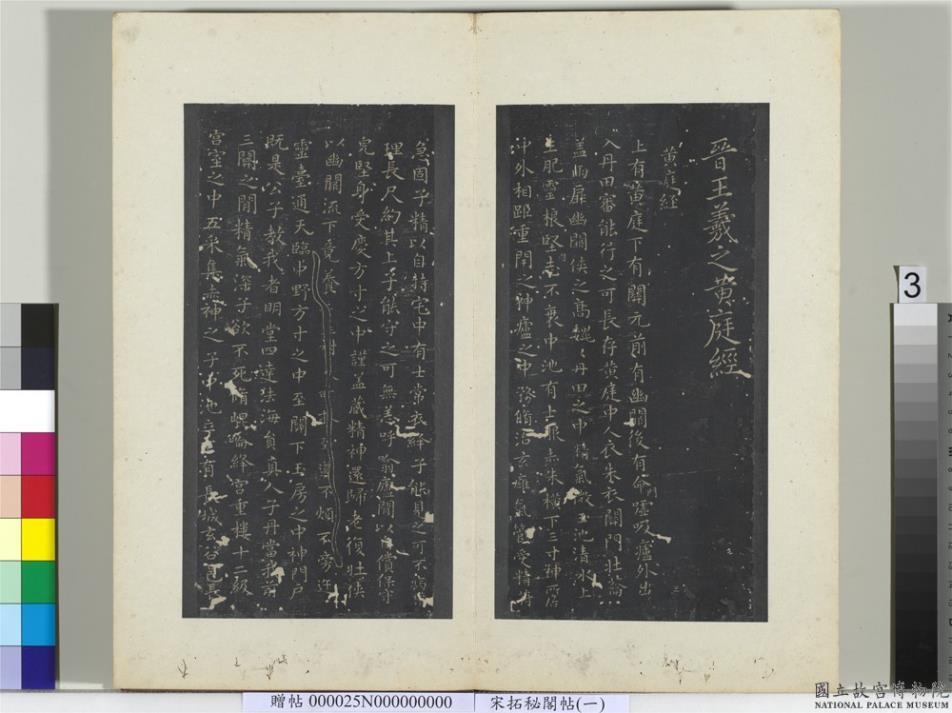 晉王羲之黃庭經
黃庭經
上有黃庭下有關元前有幽闕後有命門噓吸廬外出
入丹田審能行之可長存黃庭中人衣朱衣關門壯籥
蓋兩扉幽闕俠之高巍巍丹田之中精氣微玉池清水上
生肥靈根堅志不衰中池有士服赤朱橫下三寸神所居
中外相距重閉之神廬之中務脩治玄雍氣管受精符
急固子精以自持宅中有士常衣絳子能見之可不病
理長尺約其上子能守之可無恙呼噏廬間以自償保守
完堅身受慶方寸之中謹蓋藏精神還歸老復壯俠
以幽闕流下竟養
不煩不旁迕
靈臺通天臨中野方寸之中至關下玉房之中神門戶
既是公子教我者明堂四達法海員真人子丹當我前
三關之間精氣深子欲不死脩崐崘絳宮重樓十二級
宮室之中五采集赤神之子中池立下有長城玄谷邑長
3
贈帖 000025N000000000
宋拓秘閣帖(一)
國立故宮博物院
NATIONAL PALACE MUSEUM